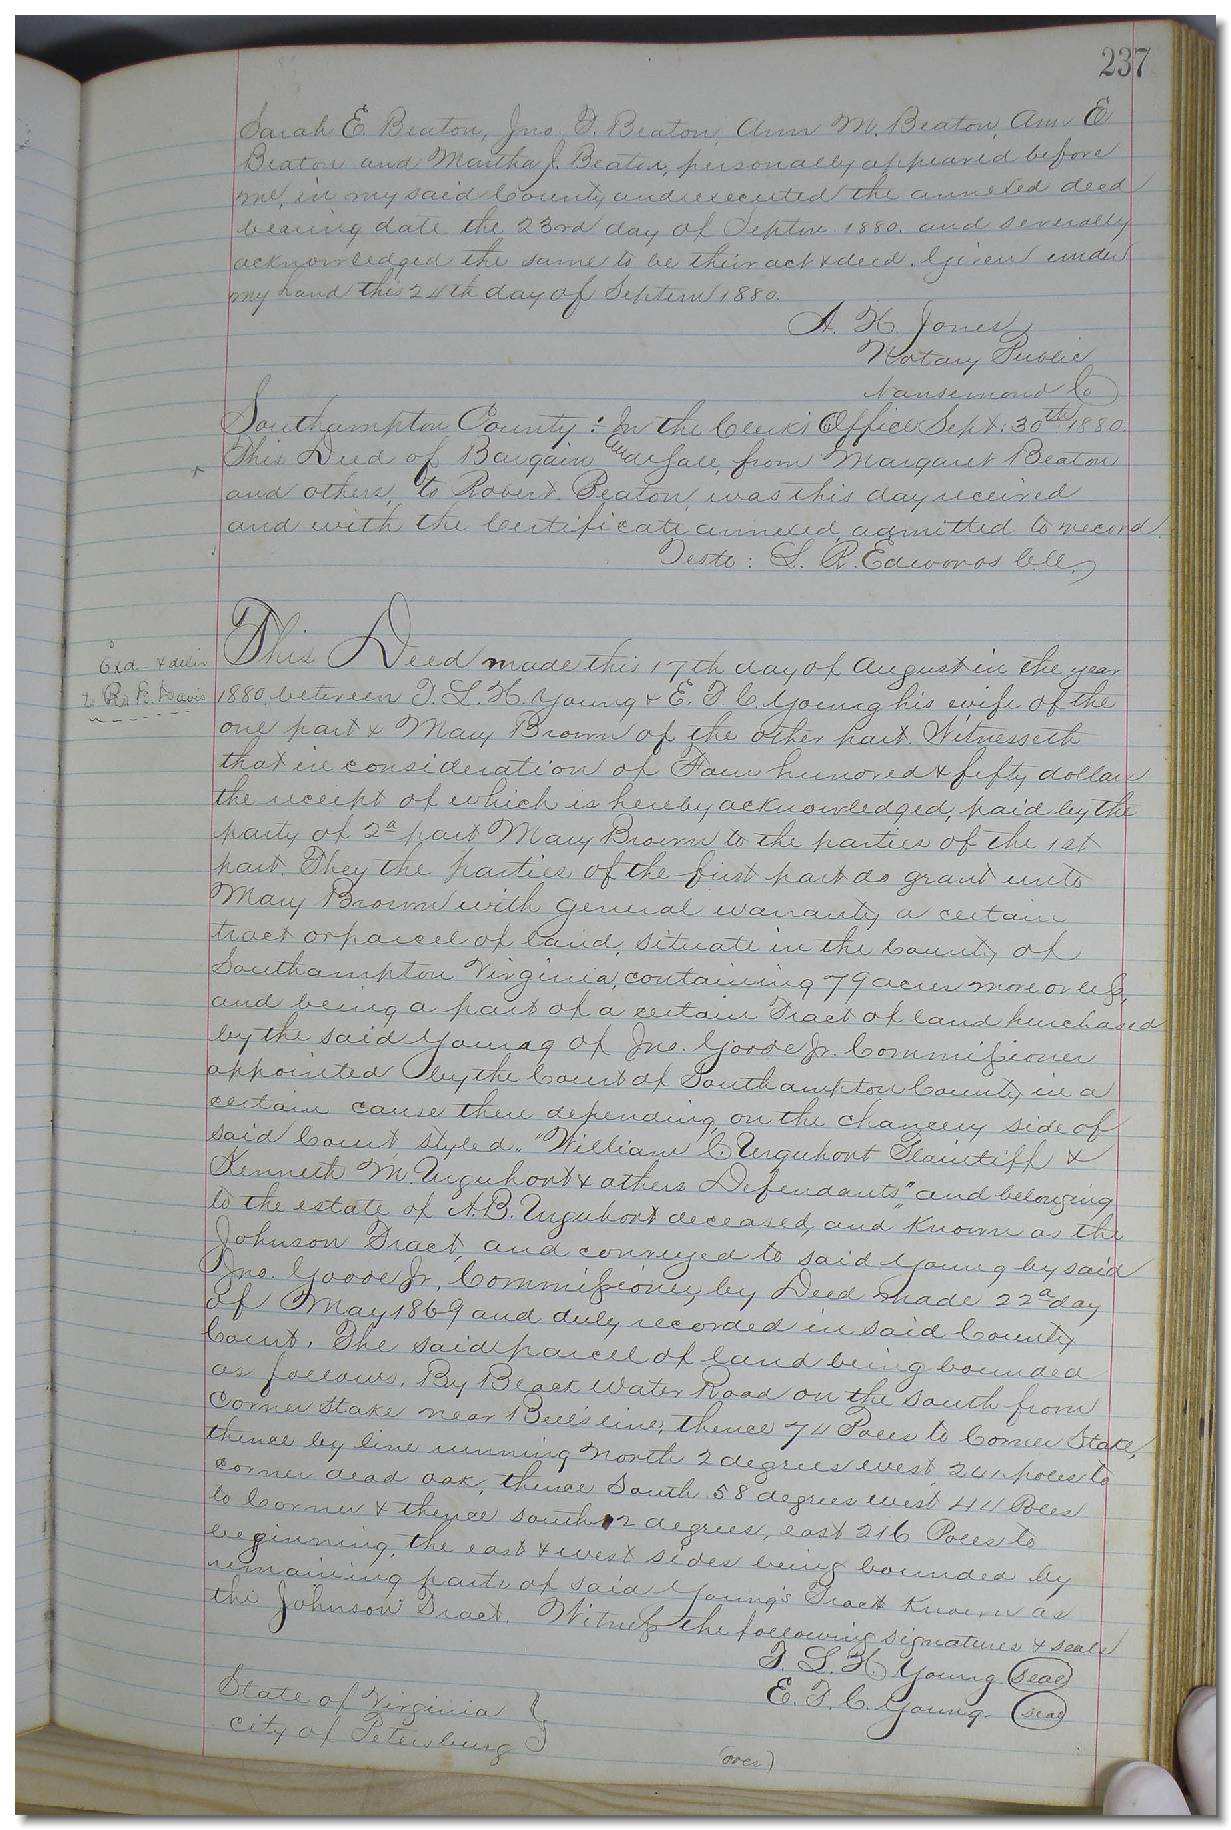 237
Sarah E Beaton, Jno. T. Beaton, Ann M. Beaton, Ann E
Beaton and Martha J. Beaton, personally appeared before
me, in my said County and executed the annexed deed
bearing date the 23rd day of Septem 1880. and severally
acknowledged the same to be their act & deed. Given under
my hand this 24th day of Septem 1880.
A. H. Jones,
Notary Public
Nansemond Co
Southampton County: In the Clerk's Office Sept. 30th 1880.
This Deed of Bargain and Sale, from Margaret Beaton
and others, to Robert Beaton, was this day received
and with the Certificate annexed, admitted to record.
Teste: L. R. Edwards Clk.
Exd & deliv
to R. Davis
This Deed made this 17th day of August in the year
1880. between T. L. H. Young & E. T. C. Young his wife of the
one part & Mary Brown of the other part. Witnesseth
that in consideration of Four hundred & fifty dollars
the receipt of which is hereby acknowledged, paid by the
party of 2d part Mary Brown to the parties of the 1st
part. They the parties of the first part do grant unto
Mary Brown with General warranty a certain
tract or parcel of land, situate in the County of
Southampton Virginia, containing 79 acres more or less,
and being a part of a certain Tract of land purchased
by the said Young of Jno. Goode Jr. Commissioner
appointed by the Court of Southampton County in a
certain cause there depending, on the chancery side of
said Court, styled. "William C. Urquhart Plaintiff &
Kenneth M. Urquhart & others Defendants" and belonging
to the estate of A. B. Urquhart deceased, and "Known as the
Johnson Tract, and conveyed to said Young by said
Jno. Goode Jr. Commissioner, by Deed made 22d day
of May 1869 and duly recorded in said County
Court. The said parcel of land being bounded
as follows. By Black Water Road on the south from
Corner Stake near Bell's line, thence 74 Poles to Corner Stake,
thence by line running North 2 degrees west 241 poles to
corner dead oak, thence South 58 degrees west 44 Poles
to Corner & thence south 2 degrees, east 216 Poles to
beginning, the east & west sides being bounded by
remaining parts of said Young's Tract Known as
the Johnson Tract. Witness the following signatures & seals
T. L. H. Young (seal)
E. T. C. Young. (seal)
State of Virginia }
City of Petersburg }
(over)